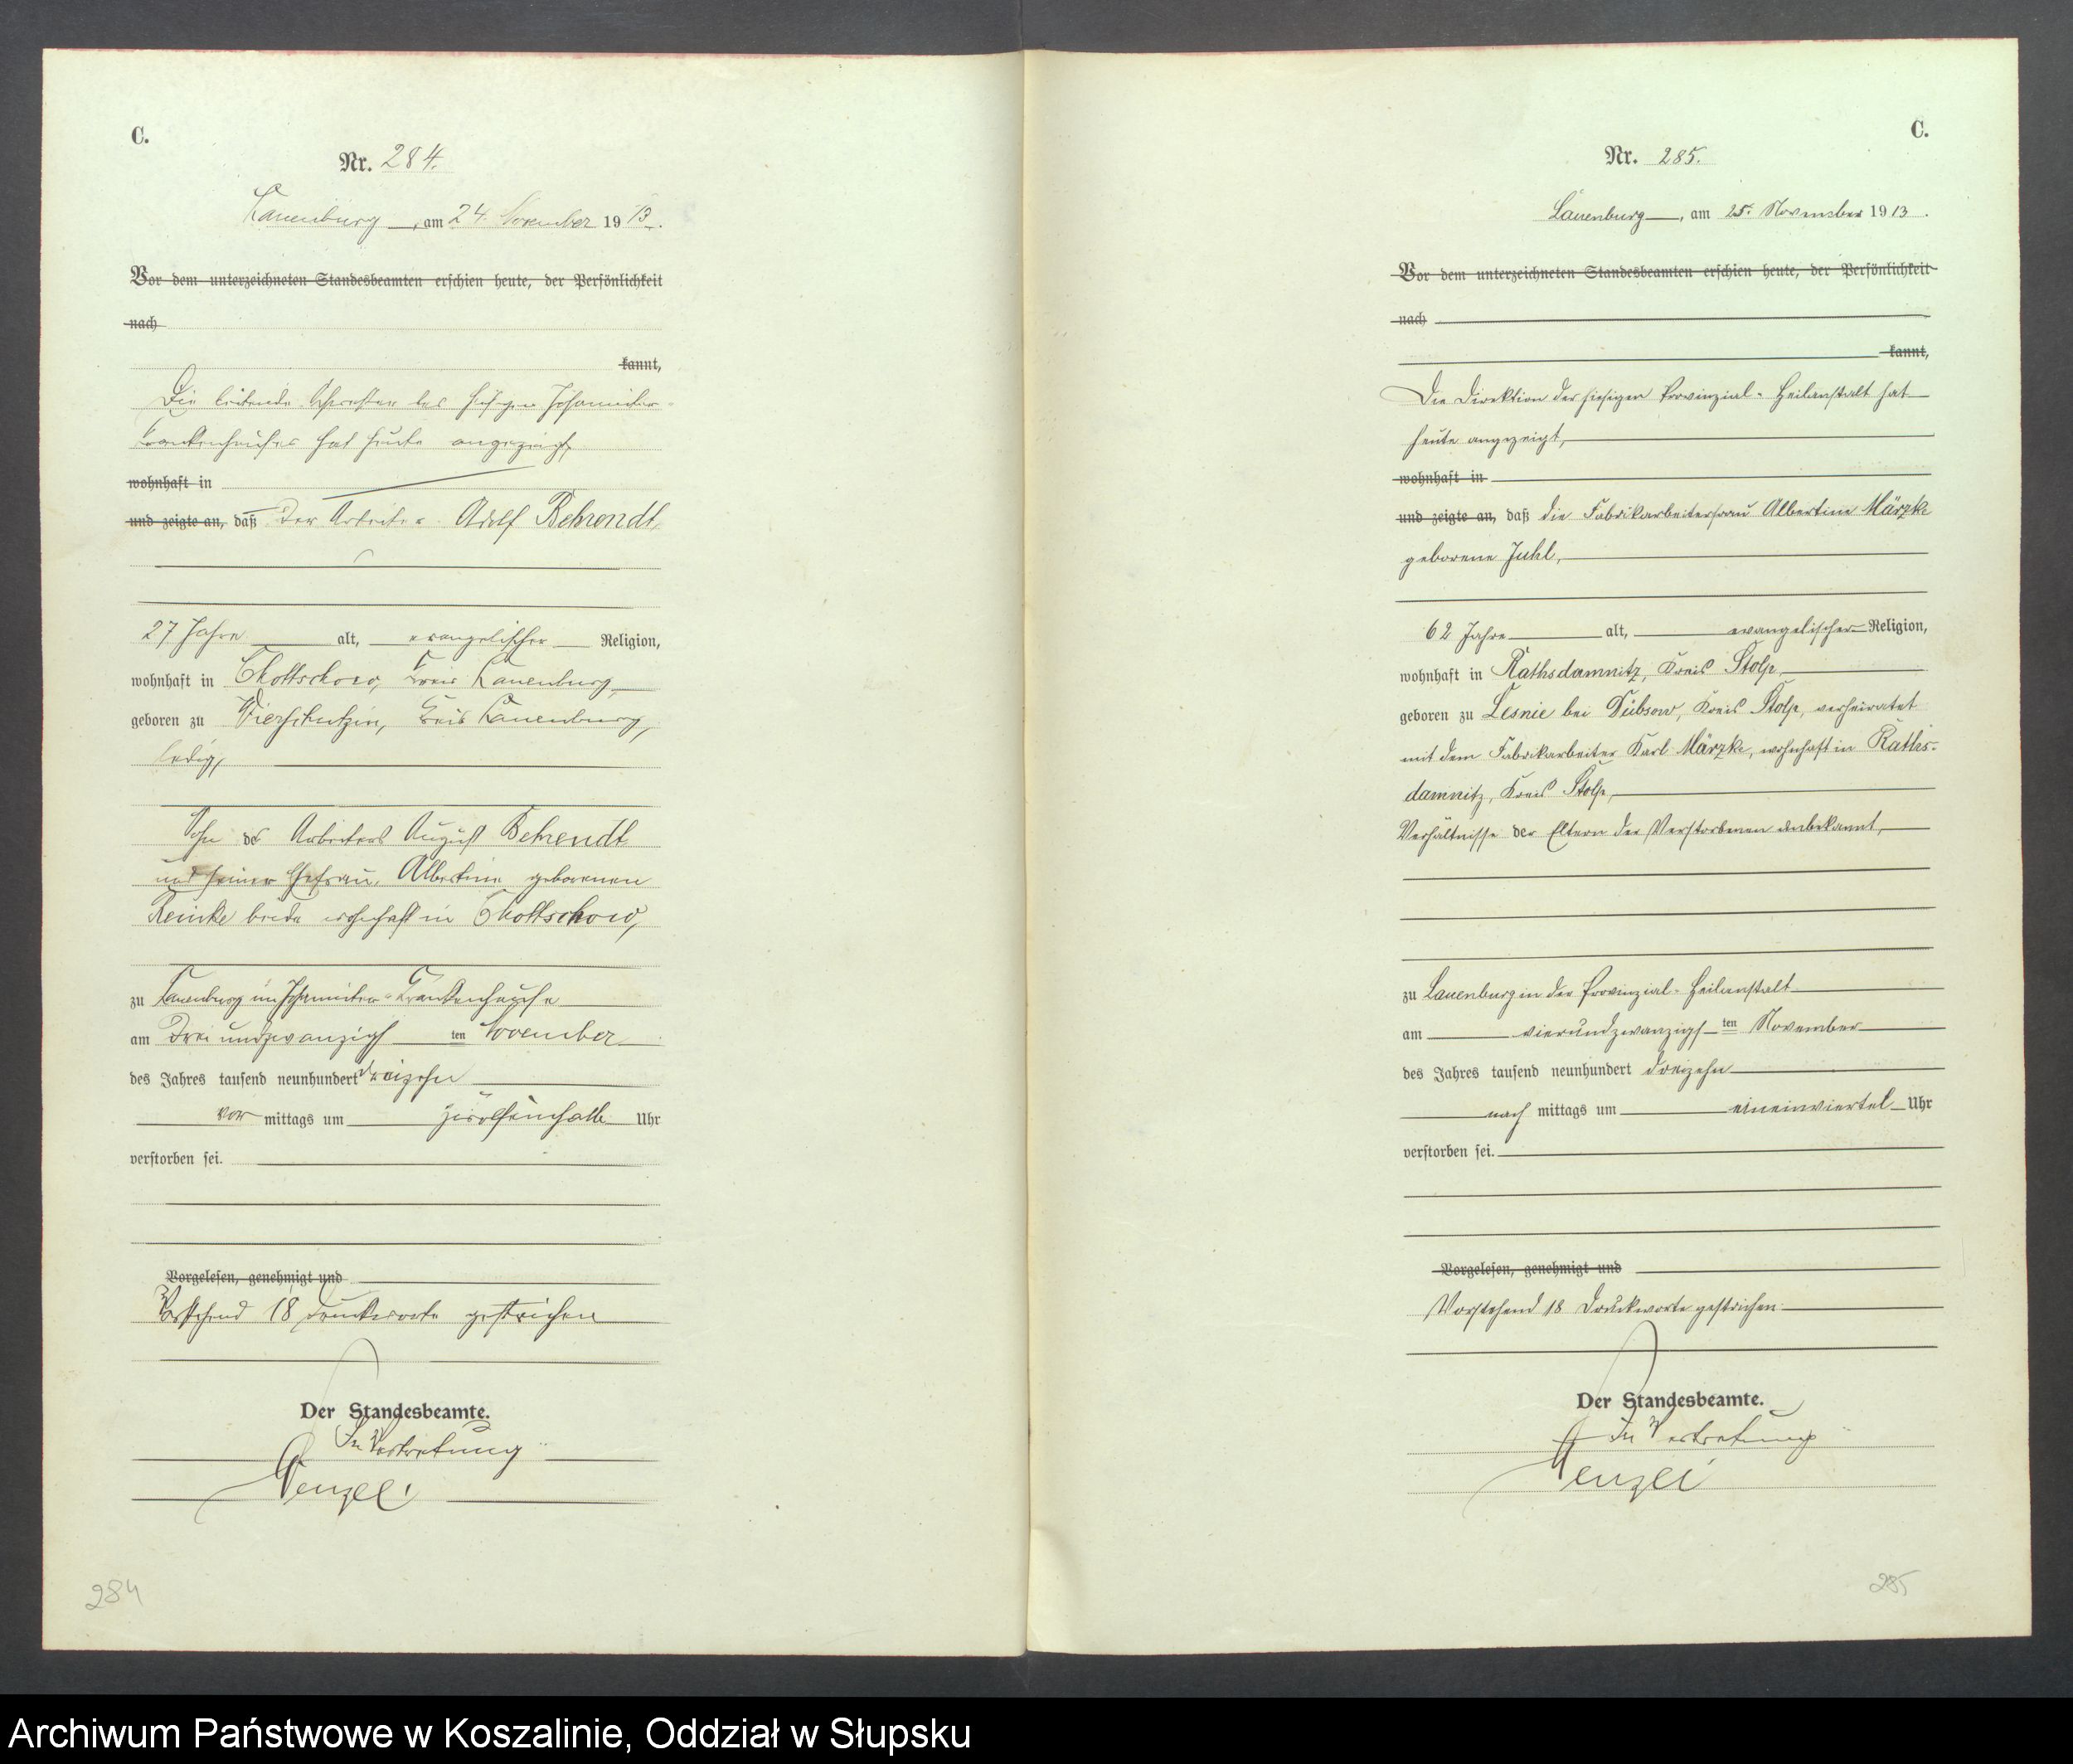 C.
Nr. 284.
Lauenburg, am 24. November 1913.
Vor dem unterzeichneten Standesbeamten erschien heute, der Persönlichkeit
nach
kannt,
Die leitende Schwester des hiesigen Johanniter-
Krankenhauses hat heute angezeigt,
wohnhaft in
und zeigte an, daß der Arbeiter Adolf Behrendt,
27 Jahre alt, evangelischer Religion,
wohnhaft in Chottschow, Kreis Lauenburg,
geboren zu Vierschutzin, Kreis Lauenburg,
ledig,
Sohn des Arbeiters August Behrendt
und seiner Ehefrau, Albertine geborenen
Reinke beide wohnhaft in Chottschow,
zu Lauenburg im Johanniter-Krankenhause
am dreiundzwanzigsten November
des Jahres tausend neunhundert dreizehn
vor mittags um zwölfeinhalb Uhr
verstorben sei.
Vorgelesen, genehmigt und
Vorstehend 18 Druckworte gestrichen
Der Standesbeamte.
In Vertretung
Wenzel
284
C.
Nr. 285.
Lauenburg, am 25. November 1913.
Vor dem unterzeichneten Standesbeamten erschien heute, der Persönlichkeit
nach
kannt,
Die Direktion der hiesigen Provinzial-Heilanstalt hat
heute angezeigt,
wohnhaft in
und zeigte an, daß die Fabrikarbeiterfrau Albertine Märzke
geborene Juhl,
62 Jahre alt, evangelischer Religion,
wohnhaft in Rathsdamnitz, Kreis Stolp,
geboren zu Lesnie bei Dübsow, Kreis Stolp, verheiratet
mit dem Fabrikarbeiter Karl Märzke, wohnhaft in Raths-
damnitz, Kreis Stolp,
Verhältnisse der Eltern der Verstorbenen unbekannt,
zu Lauenburg in der Provinzial-Heilanstalt
am vierundzwanzigsten November
des Jahres tausend neunhundert dreizehn
nach mittags um eineinviertel Uhr
verstorben sei.
Vorgelesen, genehmigt und
Vorstehend 18 Druckworte gestrichen.
Der Standesbeamte.
In Vertretung
Wenzel
285
Archiwum Państwowe w Koszalinie, Oddział w Słupsku